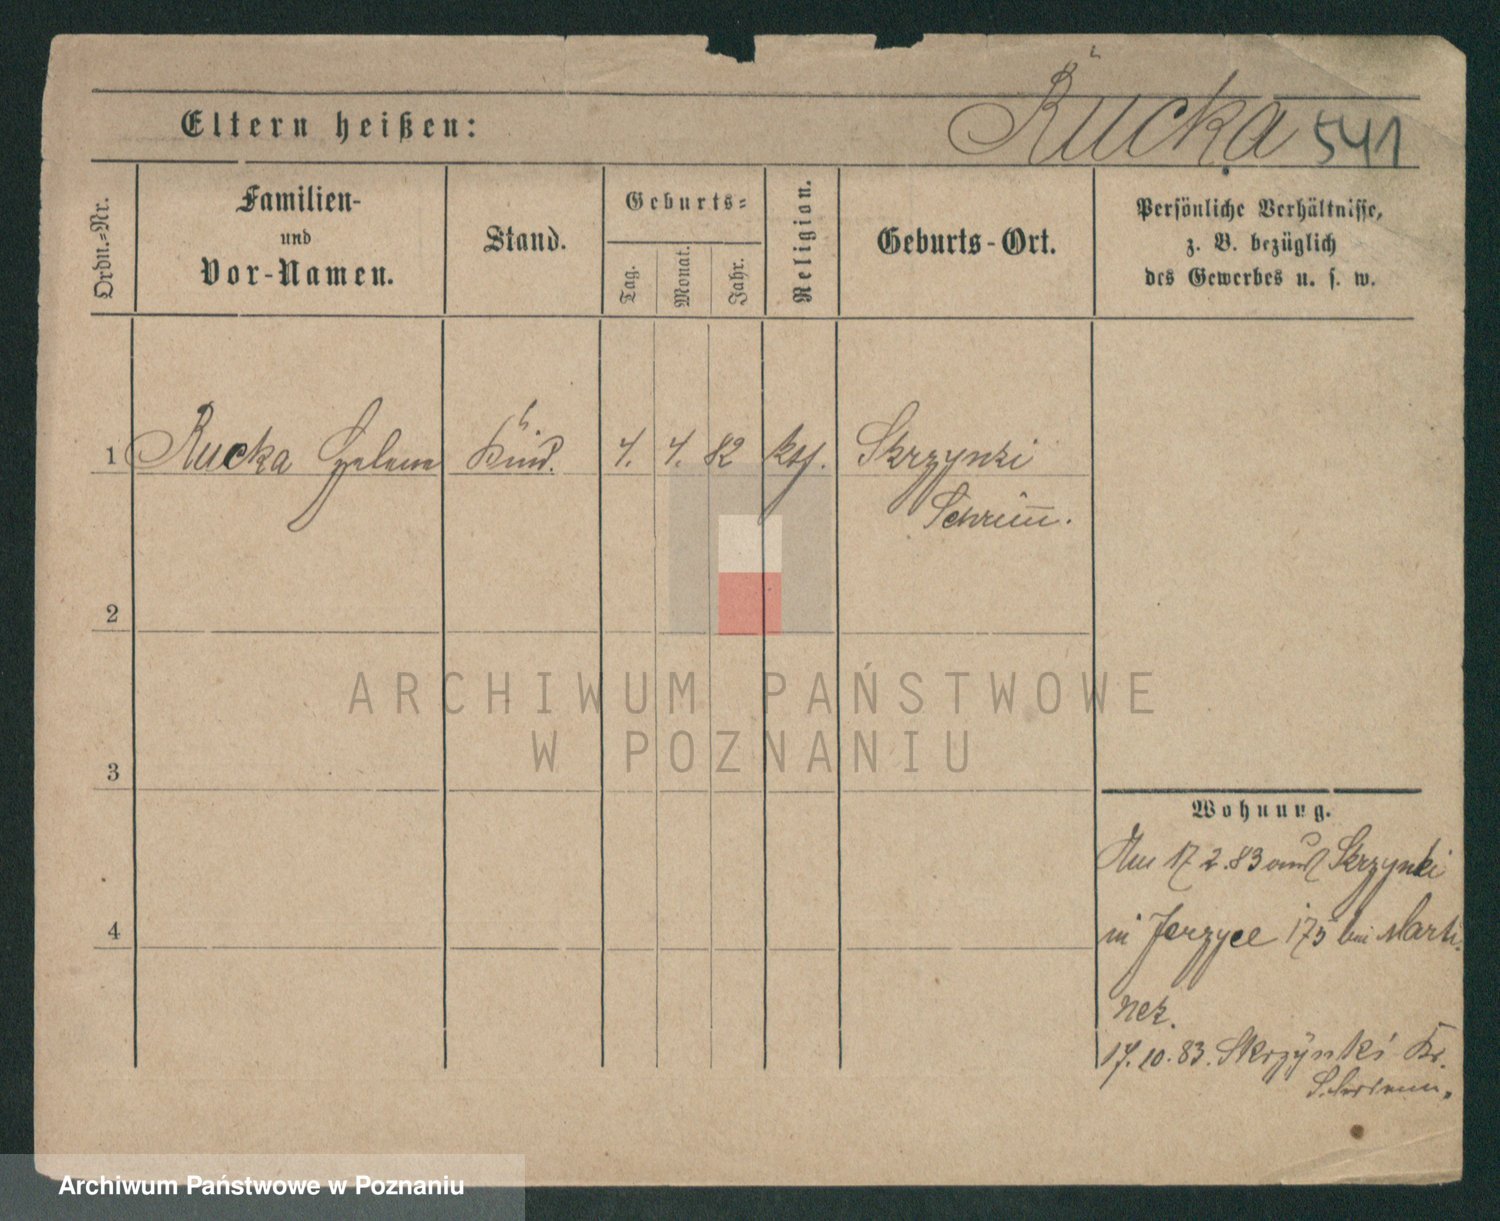 Eltern heißen:
Rucka 541
Ordn.-Nr.
Familien-
und
Vor-Namen.
Stand.
Geburts-
Tag.
Monat.
Jahr.
Religion.
Geburts-Ort.
Persönliche Verhältnisse,
z. B. bezüglich
des Gewerbes u. s. w.
1 Rucka Helene Kind. 4. 4. 82 kth. Skrzynki
Schrim̄.
2
3
4
Wohnung.
Am 17 2. 83 aus Skrzynki
in Jerzyce 175 bei Marti
nek.
17. 10. 83. Skrzynki Kr.
Schrimm.
ARCHIWUM PAŃSTWOWE
W POZNANIU
Archiwum Państwowe w Poznaniu